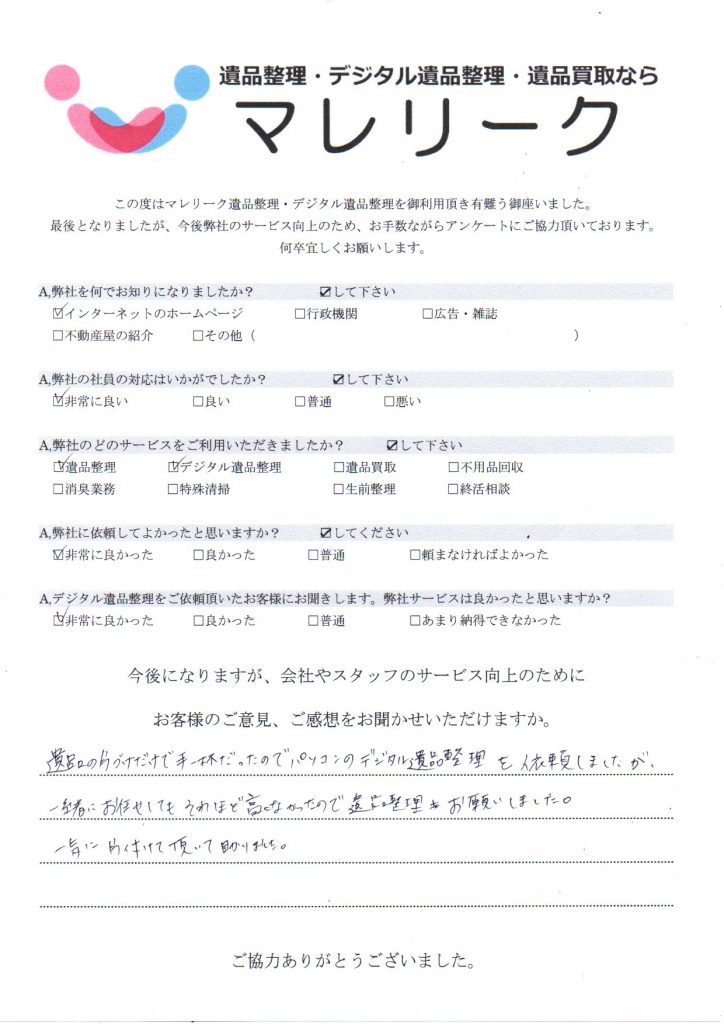 遺品整理・デジタル遺品整理・遺品買取なら
マレリーク
この度はマレリーク遺品整理・デジタル遺品整理を御利用頂き有難う御座いました。
最後となりましたが、今後弊社のサービス向上のため、お手数ながらアンケートにご協力頂いております。
何卒宜しくお願いします。
A,弊社を何でお知りになりましたか？ ☑して下さい
☑インターネットのホームページ □行政機関 □広告・雑誌
□不動産屋の紹介 □その他（ ）
A,弊社の社員の対応はいかがでしたか？ ☑して下さい
☑非常に良い □良い □普通 □悪い
A,弊社のどのサービスをご利用いただきましたか？ ☑して下さい
☑遺品整理 ☑デジタル遺品整理 □遺品買取 □不用品回収
□消臭業務 □特殊清掃 □生前整理 □終活相談
A,弊社に依頼してよかったと思いますか？ ☑してください
☑非常に良かった □良かった □普通 □頼まなければよかった
A,デジタル遺品整理をご依頼頂いたお客様にお聞きします。弊社サービスは良かったと思いますか？
☑非常に良かった □良かった □普通 □あまり納得できなかった
今後になりますが、会社やスタッフのサービス向上のために
お客様のご意見、ご感想をお聞かせいただけますか。
遺品の片づけだけで手一杯だったのでパソコンのデジタル遺品整理を依頼しましたが、
一緒にお任せしてもそれほど高くなかったので遺品整理もお願いしました。
一気に片付けて頂いて助かりました。
ご協力ありがとうございました。